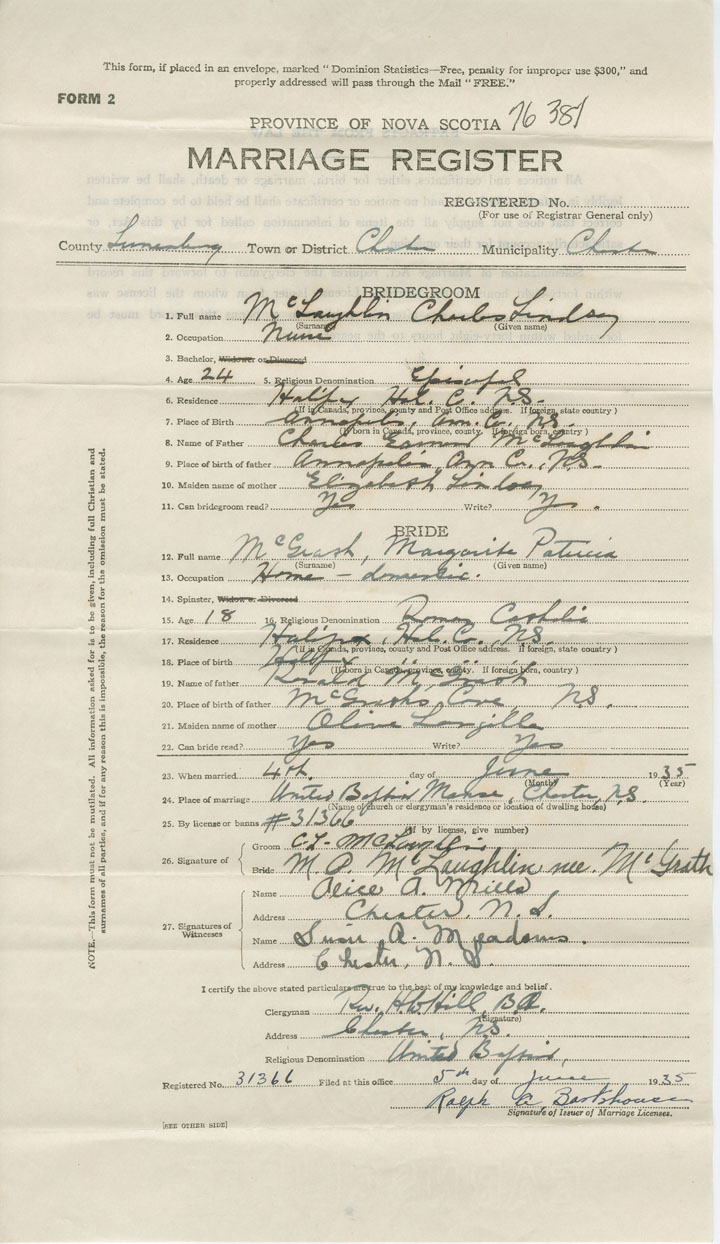 This form, if placed in an envelope, marked "Dominion Statistics—Free, penalty for improper use $300," and
properly addressed will pass through the Mail "FREE."
FORM 2
PROVINCE OF NOVA SCOTIA 76 381
MARRIAGE REGISTER
REGISTERED No.
(For use of Registrar General only)
County Lunenburg Town or District Chester Municipality Chester
BRIDEGROOM
1. Full name McLaughlin Charles Lindsay
(Surname) (Given name)
2. Occupation Nurse
3. Bachelor, Widower or Divorced
4. Age 24 5. Religious Denomination Episcopal
6. Residence Halifax Hal. C. N.S.
(If in Canada, province, county and Post Office address. If foreign, state country)
7. Place of Birth Annapolis, Ann. C., N.S.
(If born in Canada, province, county. If foreign born, country)
8. Name of Father Charles McLaughlin
9. Place of birth of father Annapolis, Ann C., N.S.
10. Maiden name of mother Elizabeth Lindsay
11. Can bridegroom read? Yes Write? Yes.
BRIDE
12. Full name McGrath, Margarite Patricia
(Surname) (Given name)
13. Occupation Home - domestic.
14. Spinster, Widow or Divorced
15. Age 18 16. Religious Denomination Roman Catholic
17. Residence Halifax, Hal. C., N.S.
(If in Canada, province, county and Post Office address. If foreign, state country)
18. Place of birth Halifax " " "
(If born in Canada, province, county. If foreign born, country)
19. Name of father McGrath
20. Place of birth of father McGraths Cove, N.S.
21. Maiden name of mother Olive Langille
22. Can bride read? Yes Write? Yes
23. When married 4th. day of June 1935
(Month) (Year)
24. Place of marriage United Baptist Manse, Chester, N.S.
(Name of church or clergyman's residence or location of dwelling house)
25. By license or banns #31366
(If by license, give number)
26. Signature of Groom C. L. McLaughlin
Bride M. P. McLaughlin nee. McGrath
27. Signatures of Witnesses
Name Alice A. Mills
Address Chester, N.S.
Name Susie A. Meadows.
Address Chester, N.S.
I certify the above stated particulars are true to the best of my knowledge and belief.
Clergyman Rev. H.B. Hill, B.A.
(Signature)
Address Chester, N.S.
Religious Denomination United Baptist,
Registered No. 31366 Filed at this office 5th day of June 1935
Ralph A. Barkhouse
Signature of Issuer of Marriage Licenses.
[SEE OTHER SIDE]
NOTE.—This form must not be mutilated. All information asked for is to be given, including full Christian and
surnames of all parties, and if for any reason this is impossible, the reason for the omission must be stated.